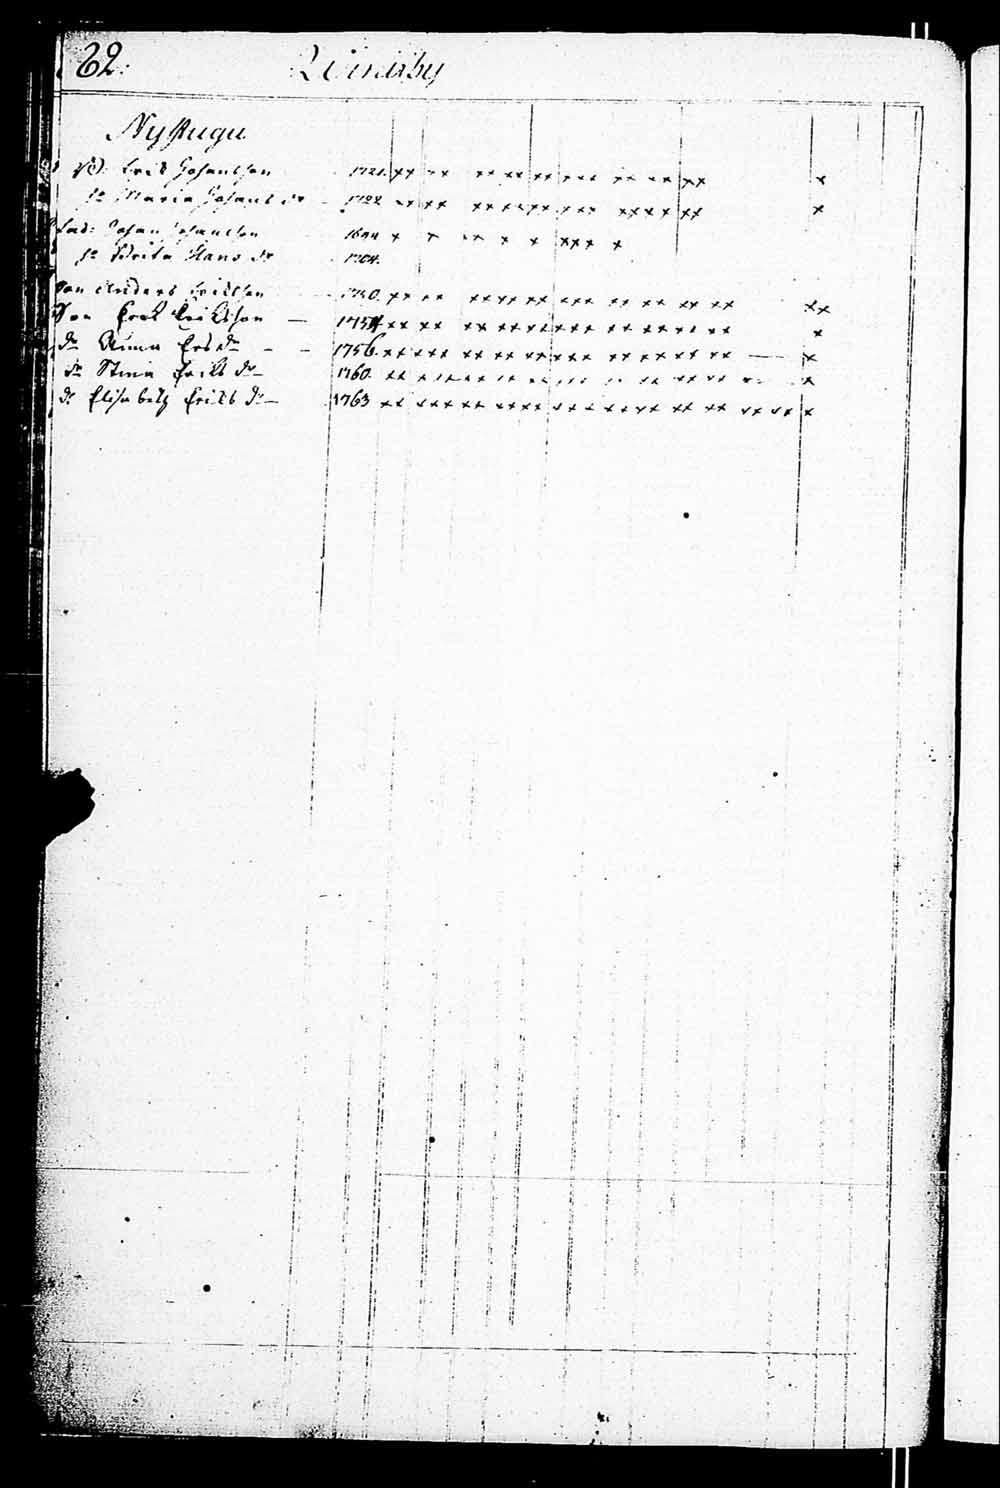 62.
Qvinisby
Nystugu
Erik Johansson 1721. xx xx xx xx xx xxx xx xx xx x
Maria Johans dr 1722 xx xx xx xx xx xxx xx xx xx x
Johan Johansson 1694 x x xx x xxx x
hu Brita Hans dr 1704.
Son Anders Ericksson 1750. xx xx xx xx xx xxx xx xx xx xx xx
Son Erick Ericksson — 1754 xx xx xx xx xx xxx xx xx xx xx x
dr Anna Ers dr — — 1756. xx xxx xx xx xx xxx xx xx xx xx — x
dr Stina Ericks dr — 1760. xx xx xx xx xx xx xx xx xx xx x
dr Elisabeth Ericks dr — 1763 xx xxxx xx xx xx xxx xx xx xx xx xx xx x